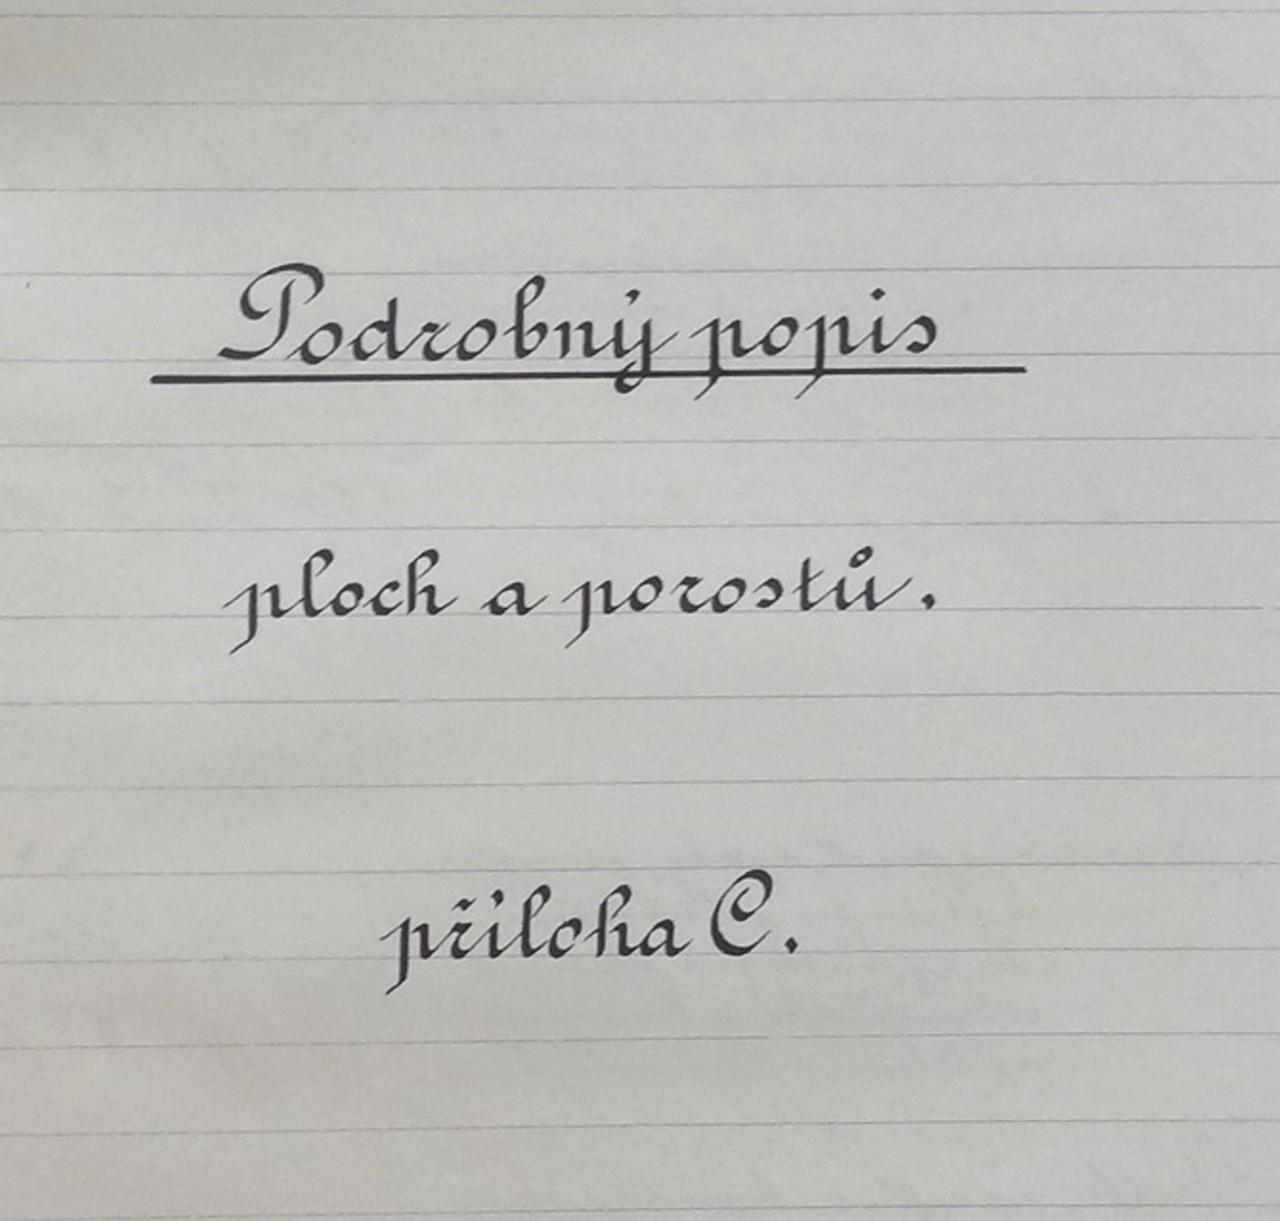 Podrobný popis
ploch a porostů.
příloha C.